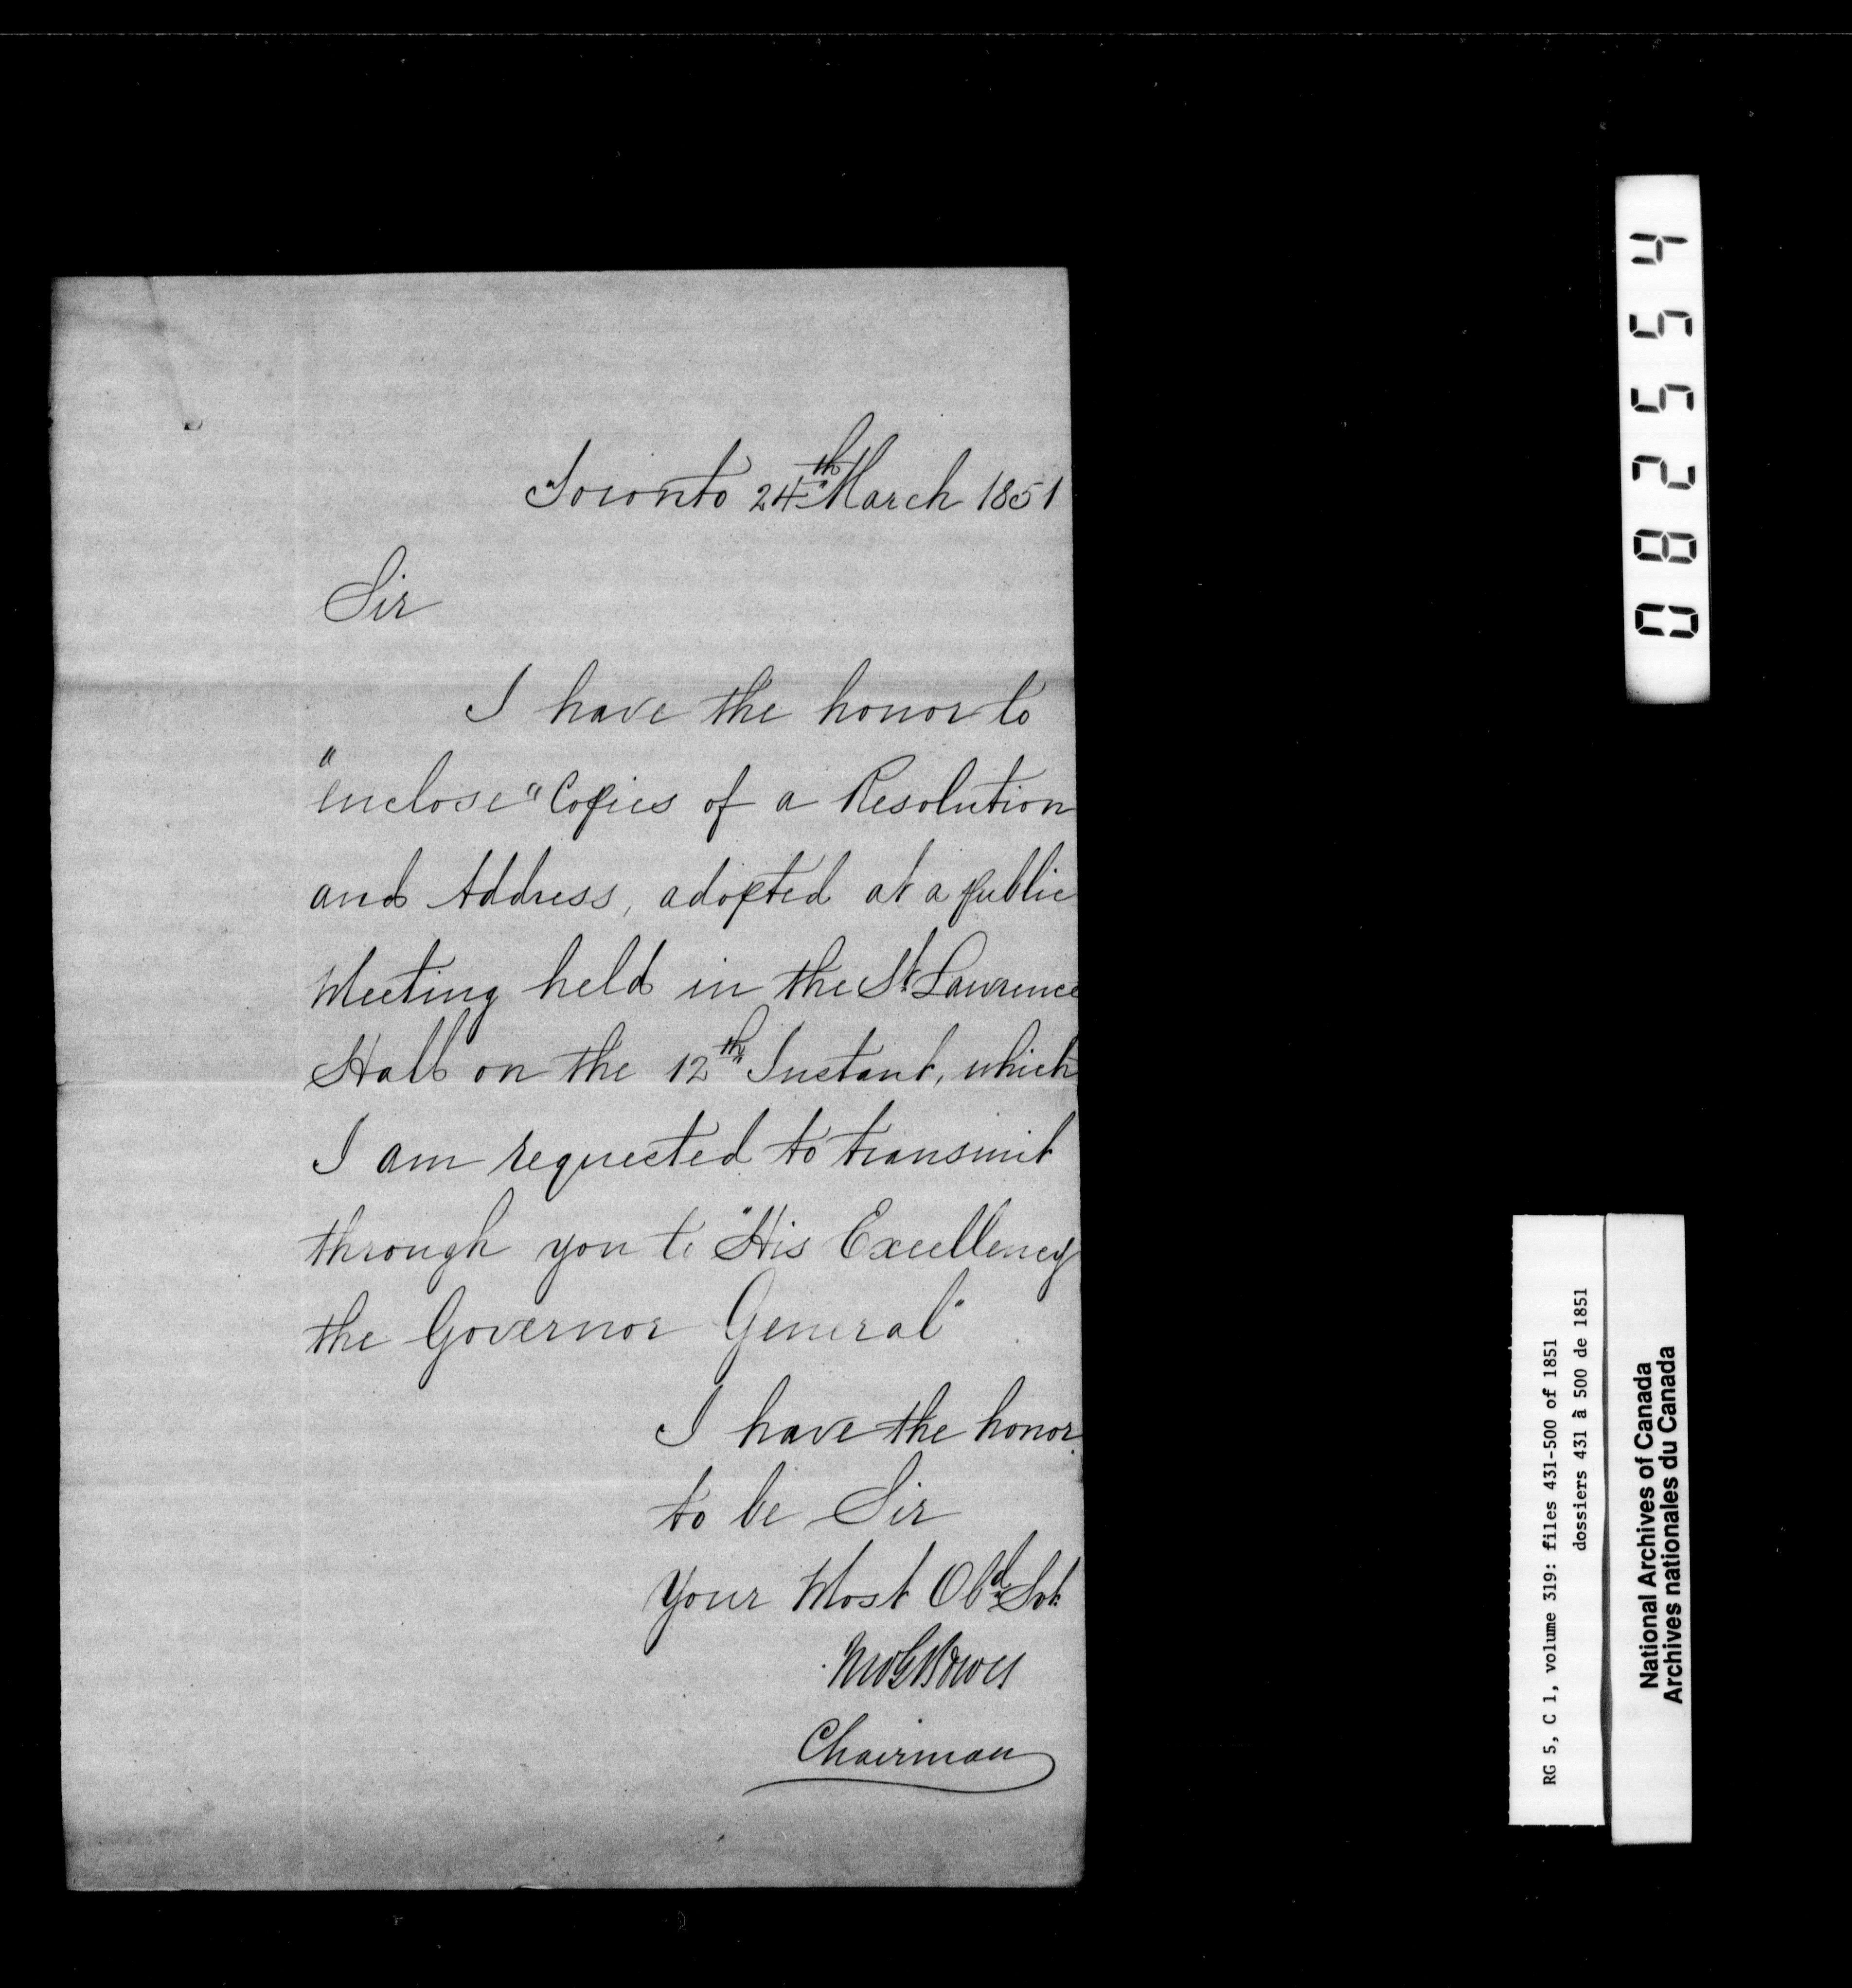 Toronto 24th March 1851
Sir
I have the honor to
"enclose" Copies of a Resolution
and Address, adopted at a public
Meeting held in the St Lawrence
Hall on the 12th Instant, which
I am requested to transmit
through you to "His Excellency
the Governor General"
I have the honor
to be Sir
Your Most Obd Svt
Jno G Bowes
Chairman
082554
RG 5, C 1, volume 319: files 431-500 of 1851
dossiers 431 à 500 de 1851
National Archives of Canada
Archives nationales du Canada